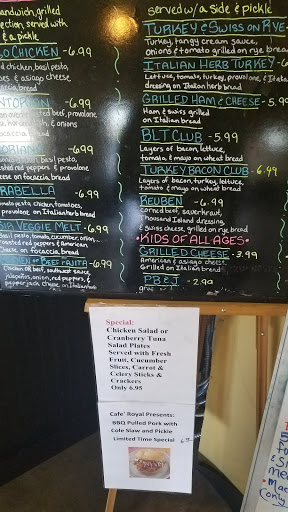 sandwich, grilled
served with
& a pickle
CHICKEN -6.99
chicken, basil pesto,
& asiago cheese,
bread
-6.99
roasted beef, provolone
& onions
bread
-6.99
basil pesto,
roasted red peppers &
cheese on focaccia bread
-6.99
pesto, chicken, tomatoes,
provolone, on Italian herb bread
VEGGIE MELT -6.99
Basil pesto, tomato, cucumber, onion,
roasted red peppers & American
cheese, on focaccia bread
CHICKEN or BEEF FAJITA -6.99
Chicken OR beef, southwest sauce,
jalapeños, onions, red peppers &
pepper jack cheese, on Italian herb
served w/ a side & pickle
TURKEY & SWISS ON RYE
Turkey, tangy cream sauce,
onions & tomato grilled on rye bread
ITALIAN HERB TURKEY -6
Lettuce, tomato, turkey, provolone, & Italian
dressing on Italian herb bread
GRILLED HAM & CHEESE -5.9
Ham & swiss grilled
on Italian bread
BLT CLUB -5.99
Layers of bacon, lettuce,
tomato, & mayo on wheat bread
TURKEY BACON CLUB -6.49
Layers of bacon, turkey, lettuce,
tomato & mayo on wheat bread
REUBEN -6.99
corned beef, sauerkraut,
thousand Island dressing,
& swiss cheese, grilled on rye bread
•KIDS OF ALL AGES•
GRILLED CHEESE -3.99
American & asiago cheese
Grilled on Italian bread
PB & J -2.99
Special:
Chicken Salad or
Cranberry Tuna
Salad Plates
Served with Fresh
Fruit, Cucumber
Slices, Carrot &
Celery Sticks &
Crackers
Only 6.95
Cafe' Royal Presents:
BBQ Pulled Pork with
Cole Slaw and Pickle
Limited Time Special